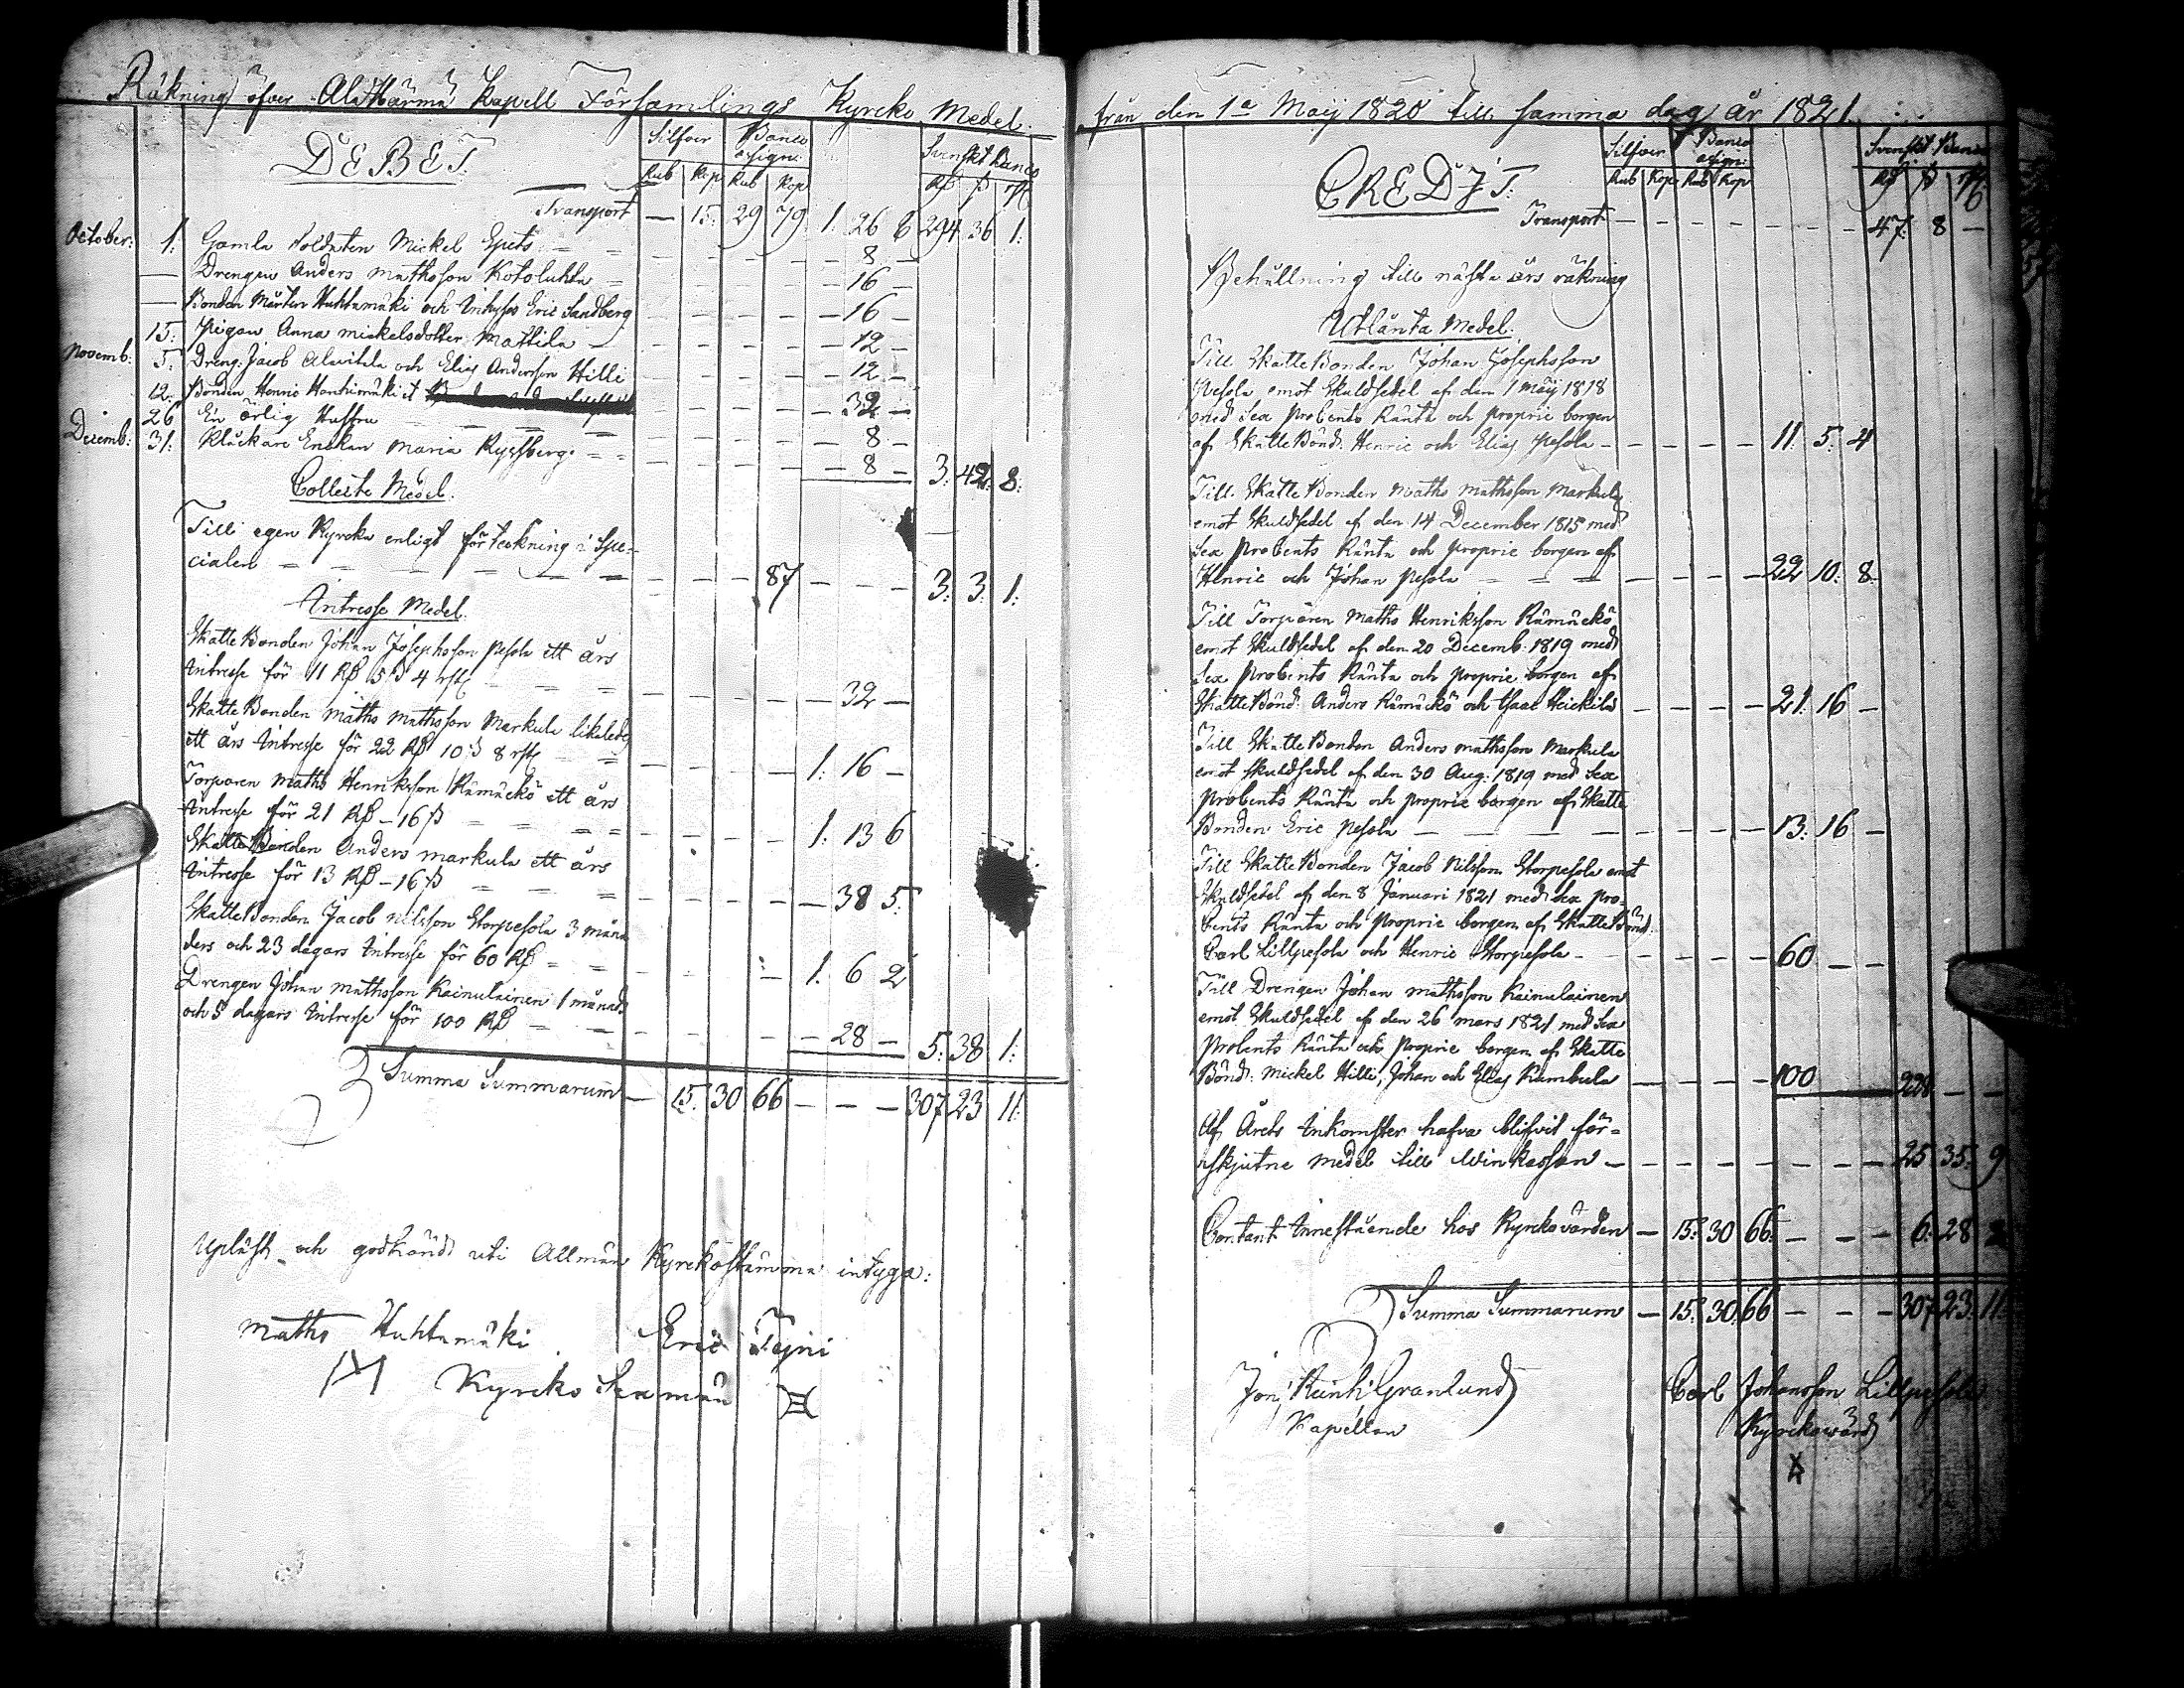 Räkning öfver Alahärmä Kapell Församlings Kyrcko Medel.
DEBET.
Silfver Banco assign: Svenskt Banco
Rub Kop Rub Kop Rß ß rst
Transport — 15. 29 79 1. 26 6 294 36 1.
October: 1. Gamla Soldaten Mickel Spets — 8 —
— Drengen Anders Mathsson Kotoluhta — 16 —
— Bonden Mårten Huhtamäki och Inhyses Eric Sandberg — 16 —
15. Pigan Anna Mickelsdotter Mattila — 12 —
Novemb: 5. Dreng: Jacob Alwitala och Elias Andersson Hilli — 12 —
12. Bonden Henric Hanhimäki et — 32 —
26 En ärlig Hustru — 8 —
Decemb: 31. Klåckare Enckan Maria Ryssberg — 8 — 3. 42. 8.
Collecte Medel.
Till egen Kyrcka enligt förteckning i Spe-
cialen — 87 — 3. 3. 1.
Intresse Medel.
Skatte Bonden Johan Josephsson Pesola ett års
Intresse för 11 Rß 5 ß 4 rst — 32 —
Skatte Bonden Maths Mathsson Markula likaledes
ett års Intresse för 22 Rß 10 ß 8 rst — 1. 16 —
Torparen Maths Henriksson Rämäckö ett års
Intresse för 21 Rß — 16 ß — 1. 13 6
Skatte Bonden Anders Markula ett års
Intresse för 13 Rß — 16 ß — 38 5.
Skatte Bonden Jacob Nilsson Storpesola 3 måna
ders och 23 dagars Intresse för 60 Rß — 1. 6 2
Drengen Johan Mathsson Kainulainen 1 månads
och 5 dagars Intresse för 100 Rß — 28 — 5. 38 1.
Summa Summarum — 15. 30 66 — — — 307 23 11.
Upläst och godkänd uti Allmän Kyrckostämma intyga:
Maths Huhtamäki Eric Tyni
Kyrcko Sexmän
från den 1a Maij 1820 till samma dag År 1821.
CREDIT.
Silfver Banco assign: Svenskt Banco
Rub Kop Rub Kop Rß ß rst
Transport — 47. 8 —
Behållning till nästa års räkning
Utlånta Medel.
Till Skatte Bonden Johan Josephsson
Pesola emot Skuldsedel af den 1 Maij 1818
med Sex Procents Ränta och proprie borgen
af Skatte Bönd: Henric och Elias Pesola — 11. 5. 4
Till Skatte Bonden Maths Mathsson Markula
emot Skuldsedel af den 14 December 1815 med
Sex Procents Ränta och proprie borgen af
Henric och Johan Pesola — 22 10. 8.
Till Torparen Maths Henriksson Rämäckö
emot Skuldsedel af den 20 Decemb: 1819 med
Sex Procents Ränta och proprie borgen af
Skatte Bönd: Anders Rämäckö och Isaac Heickilä — 21. 16 —
Till Skatte Bonden Anders Mathsson Markula
emot Skuldsedel af den 30 Aug: 1819 med Sex
Procents Ränta och proprie borgen af Skatte
Bonden Eric Pesola — 13. 16 —
Till Skatte Bonden Jacob Nilsson Storpesola emot
Skuldsedel af den 8 Januari 1821 med Sex Pro-
cents Ränta och Proprie borgen af Skatte Bönd:
Carl Lillpesola och Henric Storpesola — 60 — —
Till Drengen Johan Mathsson Kainulainen
emot Skuldsedel af den 26 Mars 1821 med Sex
Procents Ränta och Proprie borgen af Skatte
Bönd: Mickel Hilli, Johan och Elias Kambula — 100 228 — —
Af Årets Inkomster hafva blifvit för-
skjutne medel till Winkassan — 25. 35. 9
Contant Innestående hos Kyrckovärden — 15. 30 66. — — — 6. 28
Summa Summarum — 15. 30. 66 — — — 307 23. 11.
Jon, Heinh. Granlund Carl Johansson Lillpesola
Kapellan Kyrckovärd